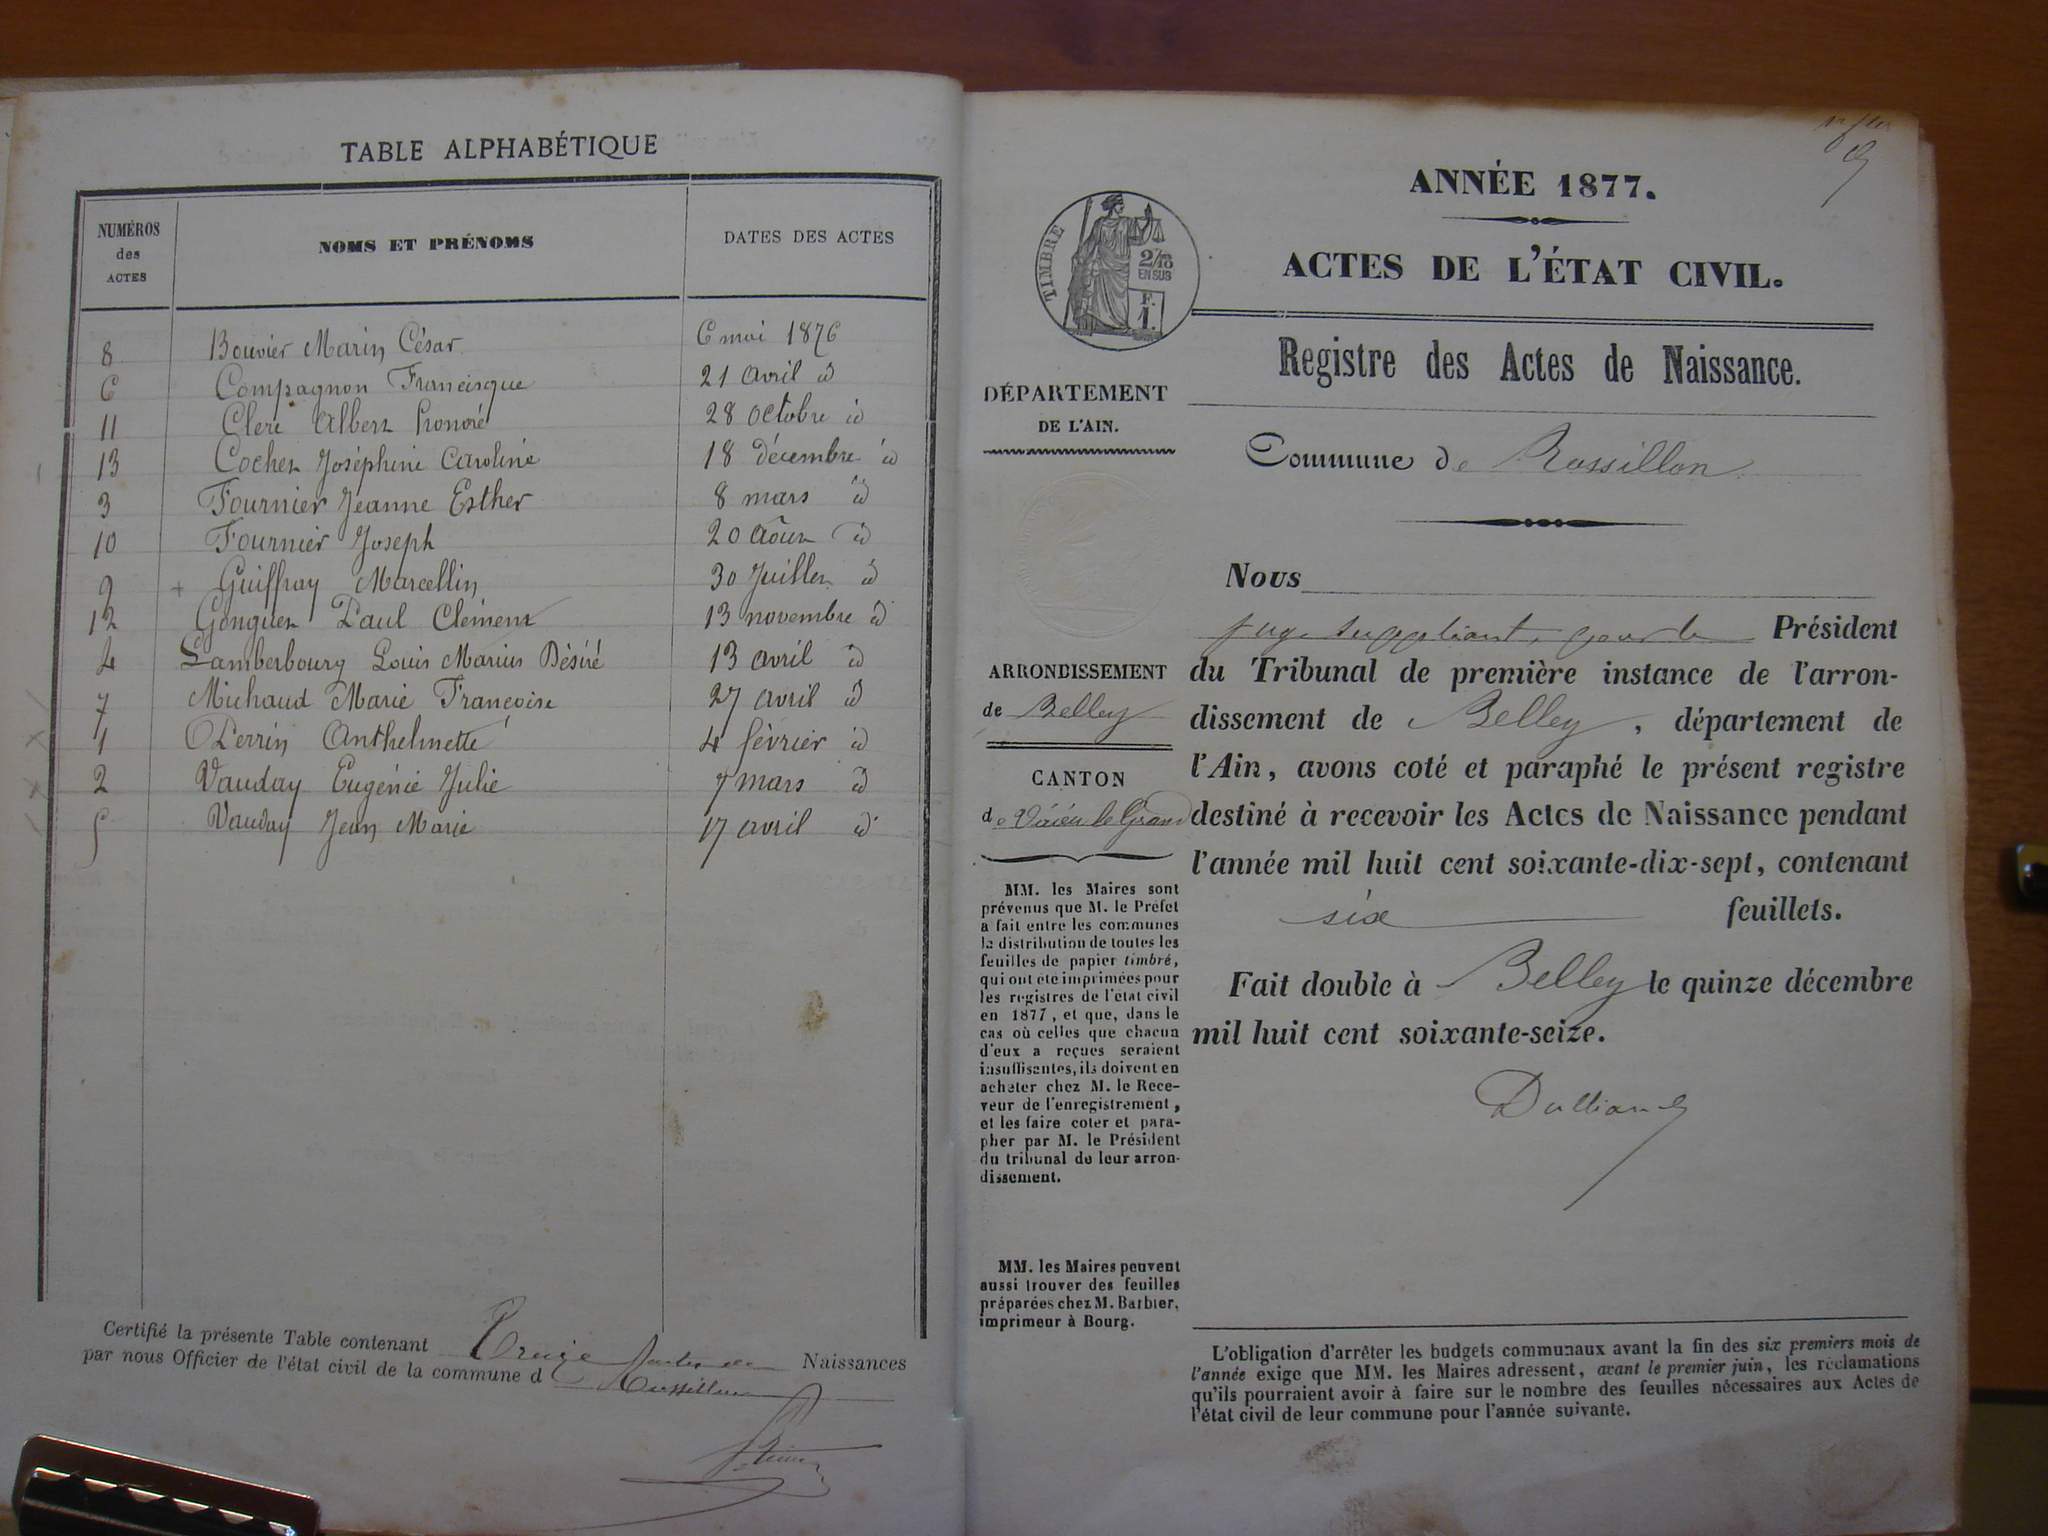 TABLE ALPHABÉTIQUE
NUMÉROS des ACTES
NOMS ET PRÉNOMS
DATES DES ACTES
8 Bouvier Marin César 6 mai 1876
6 Compagnon Francisque 21 avril id
11 Clerc Albert honoré 28 octobre id
13 Cochet Joséphine Caroline 18 décembre id
3 Fournier Jeanne Esther 8 mars id
10 Fournier Joseph 20 Août id
9 + Guiffray Marcellin 30 Juillet id
12 Gonguet Paul Clément 13 novembre id
4 Lamberbourg Louis Marius Désiré 13 avril id
7 Michaud Marie Françoise 27 avril id
1 Perrin Anthelmette 4 février id
2 Vauday Eugénie Julie 7 mars id
5 Vauday Jean Marie 17 avril id
Certifié la présente Table contenant Treize Naissances
par nous Officier de l'état civil de la commune d Rossillon
ANNÉE 1877.
ACTES DE L'ÉTAT CIVIL.
TIMBRE
2/10
EN SUS
F.
1.
Registre des Actes de Naissance.
DÉPARTEMENT
DE L'AIN.
Commune de Rossillon
Nous
juge suppléant, pour le Président
ARRONDISSEMENT
de Belley
CANTON
de Virieu le Grand
du Tribunal de première instance de l'arron-
dissement de Belley, département de
l'Ain, avons coté et paraphé le présent registre
destiné à recevoir les Actes de Naissance pendant
l'année mil huit cent soixante-dix-sept, contenant
six feuillets.
Fait double à Belley le quinze décembre
mil huit cent soixante-seize.
MM. les Maires sont
prévenus que M. le Préfet
a fait entre les communes
la distribution de toutes les
feuilles de papier timbré,
qui ont été imprimées pour
les registres de l'état civil
en 1877, et que, dans le
cas où celles que chacun
d'eux a reçues seraient
insuffisantes, ils doivent en
acheter chez M. le Rece-
veur de l'enregistrement,
et les faire coter et para-
pher par M. le Président
du tribunal de leur arron-
dissement.
MM. les Maires peuvent
aussi trouver des feuilles
préparées chez M. Barbier,
imprimeur à Bourg.
L'obligation d'arrêter les budgets communaux avant la fin des six premiers mois de
l'année exige que MM. les Maires adressent, avant le premier juin, les réclamations
qu'ils pourraient avoir à faire sur le nombre des feuilles nécessaires aux Actes de
l'état civil de leur commune pour l'année suivante.